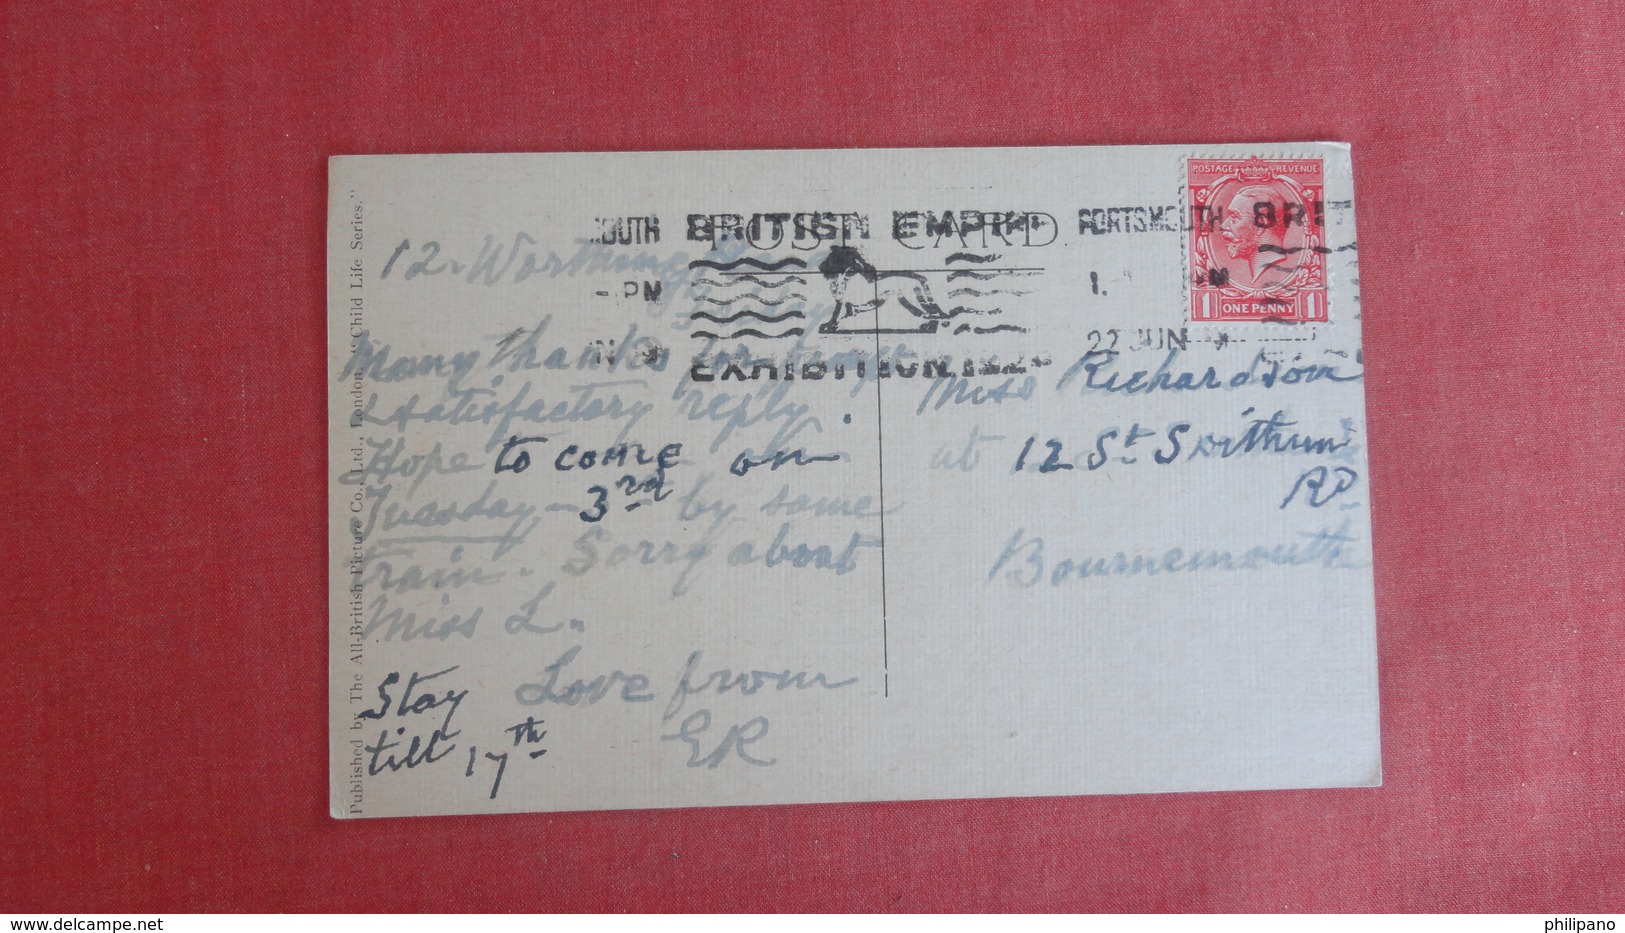 POST CARD
BRITISH EMPIRE
EXHIBITION
PORTSMOUTH
22 JUN
POSTAGE REVENUE
1 ONE PENNY 1
12. Worthing
Friday
Many thanks for
& satisfactory reply.
Hope to come on
Tuesday - 3rd by same
train. Sorry about
Miss L.
Love from
ER
Stay
till 17th
Miss Richardson
at 12 St Swithuns
RD
Bournemouth
Published by The All-British Picture Co., Ltd., London. "Child Life Series."
philipano